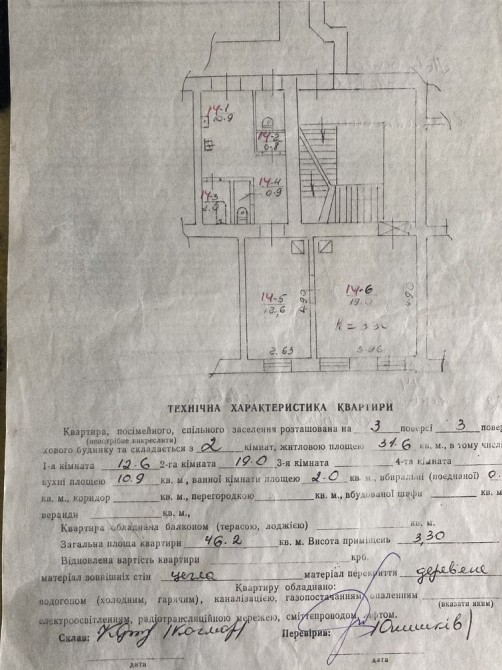 14-1
10.9
14-2
0.8
14-4
0.9
14-3
2.0
14-5
12,6
4.90
14-6
19.0
4.90
2.63
3.96
ТЕХНІЧНА ХАРАКТЕРИСТИКА КВАРТИРИ
Квартира, посімейного, спільного заселення розташована на 3 поверсі 3 повер
(непотрібне викреслити)
хового будинку та складається з 2 кімнат, житловою площею 31.6 кв. м., в тому числі
1-а кімната 12.6 2-га кімната 19.0 3-я кімната 4-та кімната
кухні площею 10.9 кв. м., ванної кімнати площею 2.0 кв. м., вбиральні (поєднаної) 0.
кв. м., коридор кв. м., перегородкою кв. м., вбудованої шафи кв. м.
веранди кв. м.,
Квартира обладнана балконом (терасою, лоджією) кв. м.
Загальна площа квартири 46.2 кв. м. Висота приміщень 3,30
Відновлена вартість квартири крб.
матеріал зовнішніх стін цегла матеріал перекриття деревяне
Квартиру обладнано:
водогоном (холодним, гарячим), каналізацією, газопостачанням, опаленням
(вказати яким)
електроосвітленням, радіотрансляційною мережею, сміттєпроводом, ліфтом.
Склав: Перевірив:
дата дата